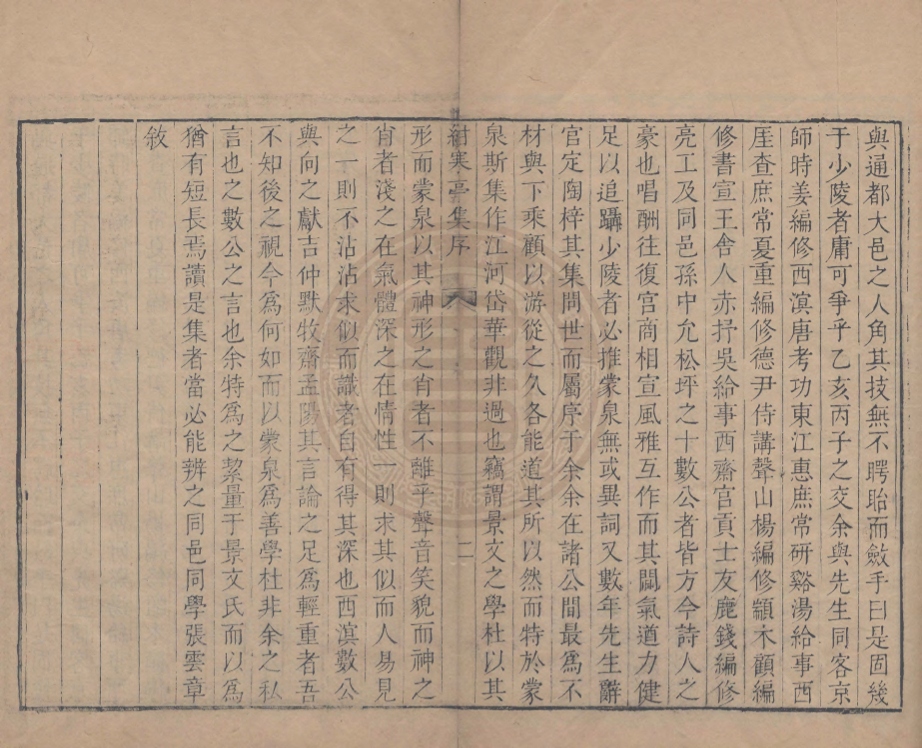 與通都大邑之人角其技無不聘眙而斂手曰是固幾
于少陵者庸可爭乎乙亥丙子之交余與先生同客京
師時姜編修西溟唐考功東江惠庶常研谿湯給事西
厓查庶常夏重編修德尹侍講聲山楊編修顓木顧編
修書宣王舍人赤抒吳給事西齋宮貢士友鹿錢編修
亮工及同邑孫中允松坪之十數公者皆方今詩人之
豪也唱酬往復宮商相宣風雅互作而其閎氣道力健
足以追躡少陵者必推蒙泉無或異詞又數年先生辭
官定陶梓其集問世而屬序于余余在諸公間最為不
材與下乘顧以游從之久各能道其所以然而特於蒙
泉斯集作江河岱華觀非過也竊謂景文之學杜以其
紺寒亭集序 二
形而蒙泉以其神形之肖者不離乎聲音笑貌而神之
肖者淺之在氣體深之在情性一則求其似而人易見
之一則不沾沾求似而識者自有得其深也西溟數公
與向之獻吉仲默牧齋孟陽其言論之足為輕重者吾
不知後之視今為何如而以蒙泉為善學杜非余之私
言也之數公之言也余特為之絜量于景文氏而以為
猶有短長焉讀是集者當必能辨之同邑同學張雲章
敘